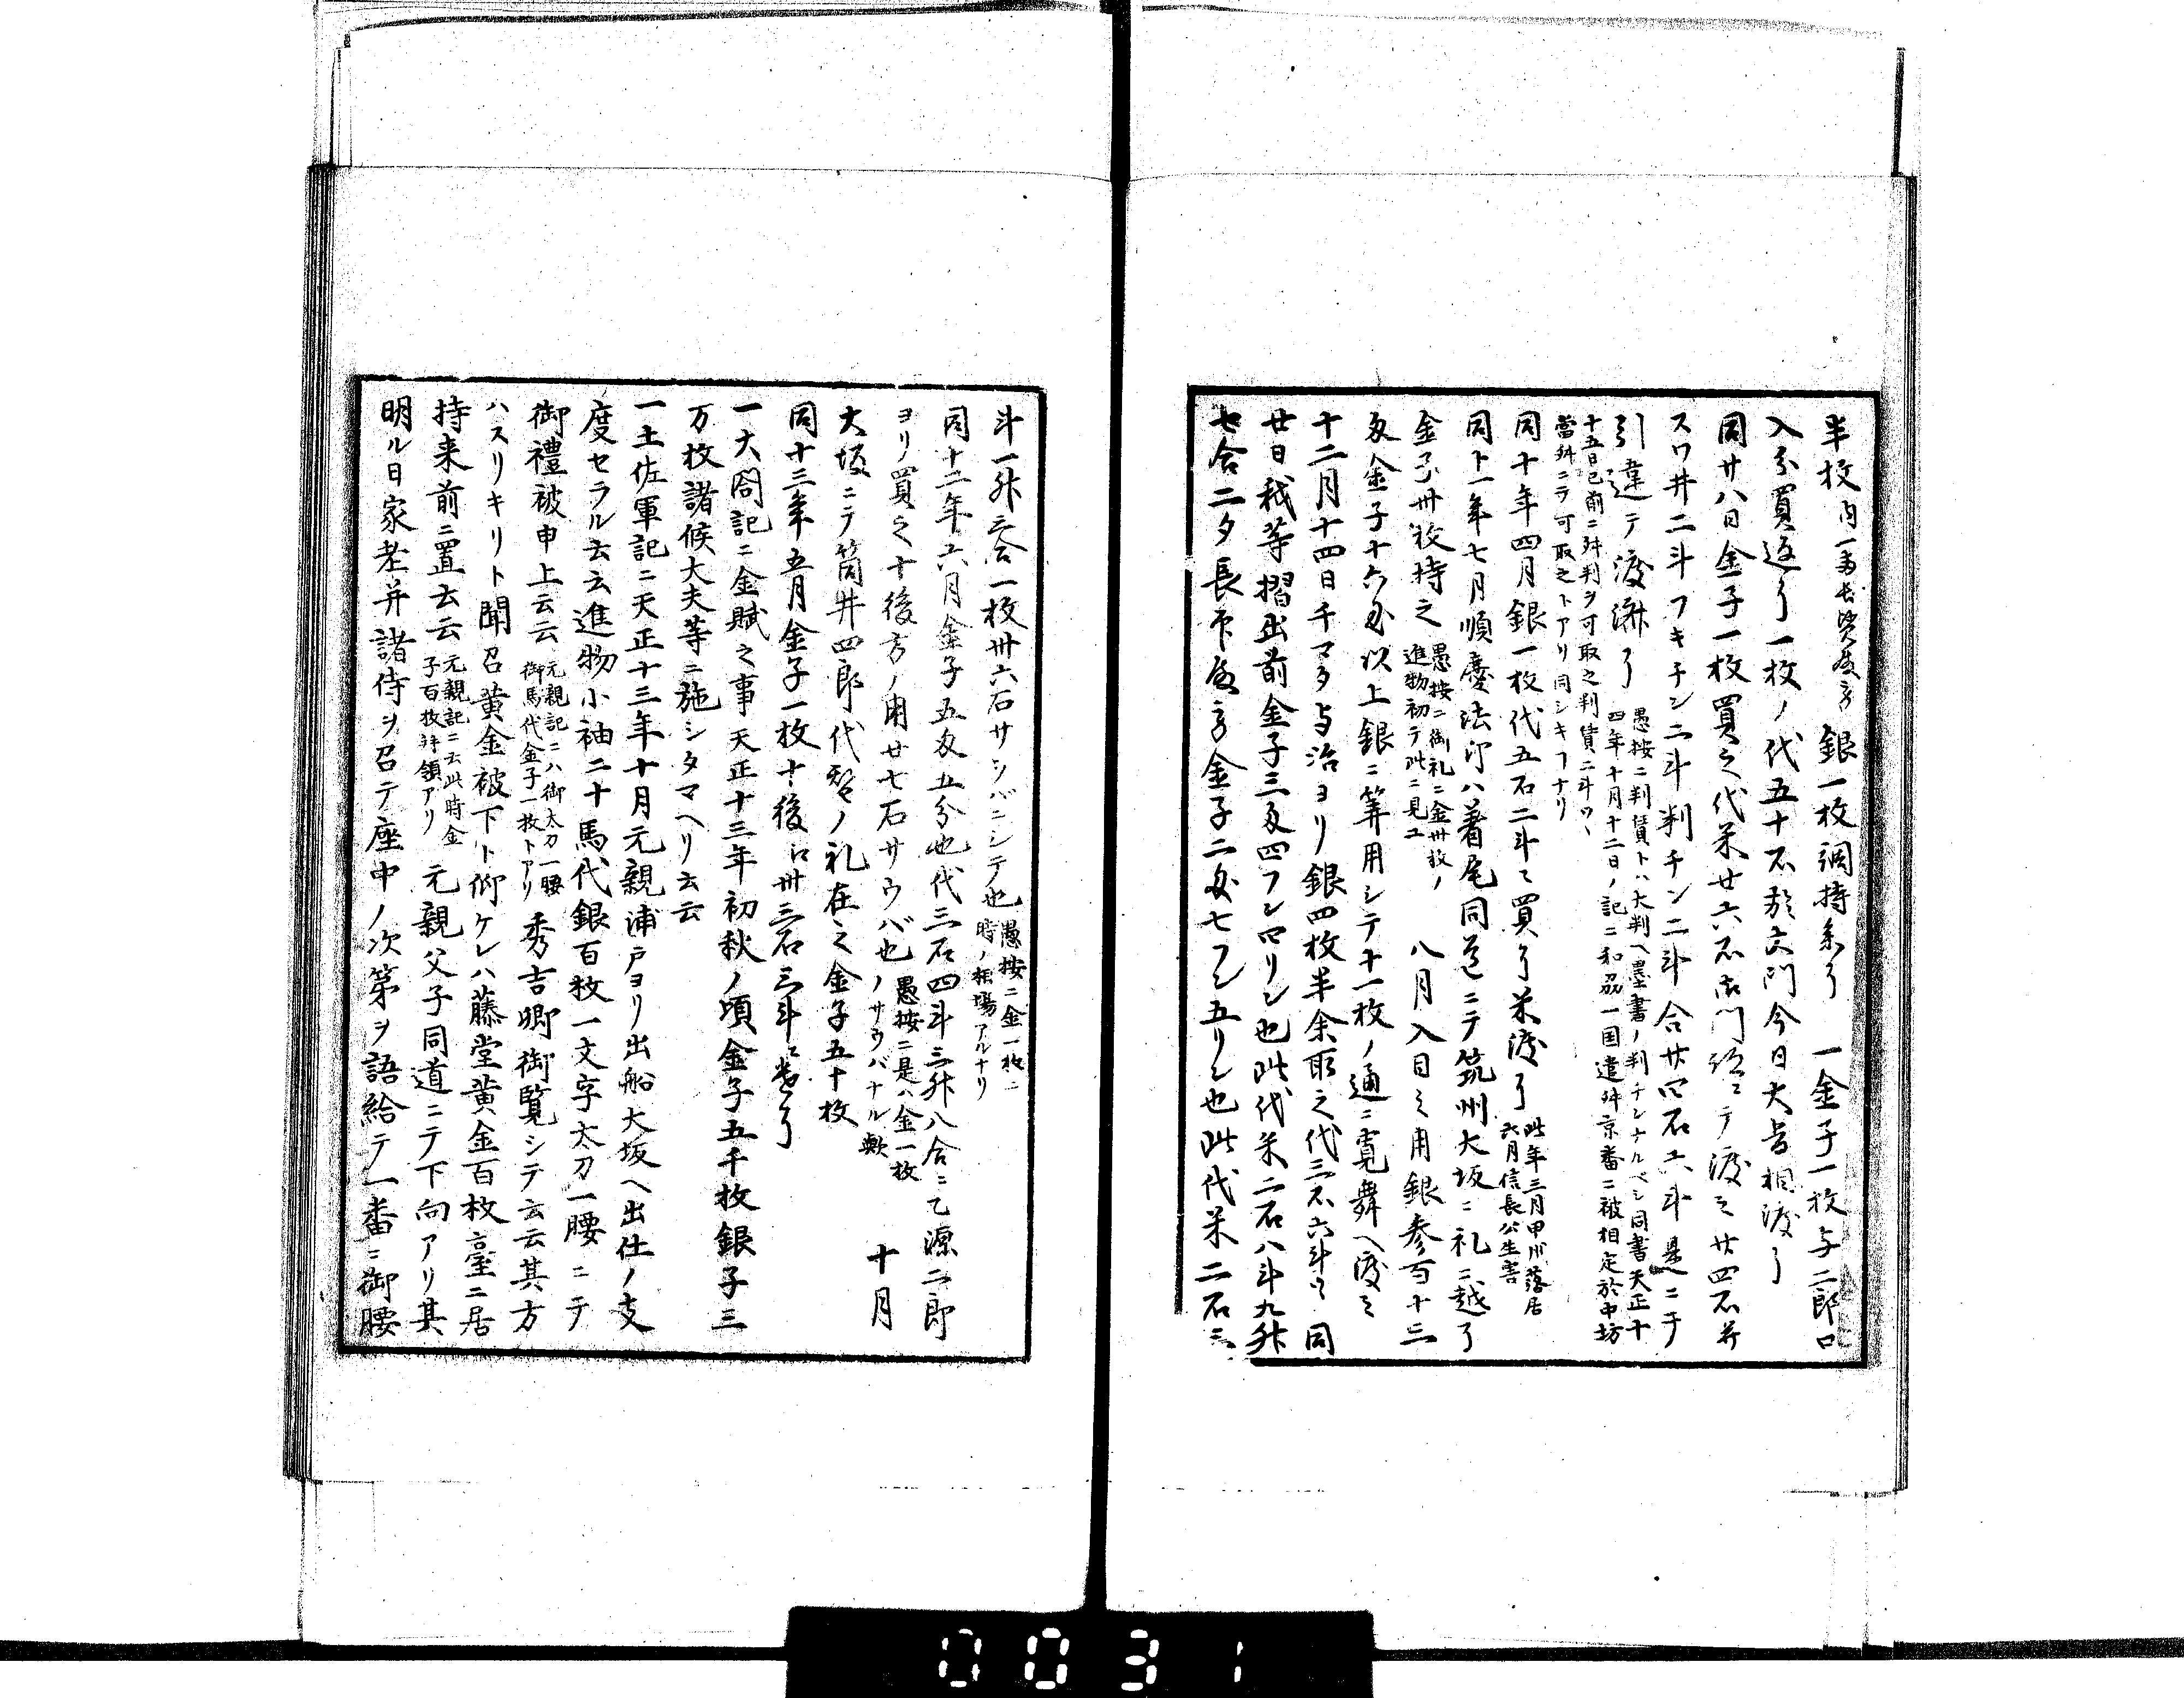 半枚 銀一枚調持参了 一金子一枚与二郎口
入分買返了一枚ノ代五十石於六門今日大旨相渡了
同廿八日金子一枚買之代米廿六石 門ニテ渡之廿四石并
スワ井二斗フキチン二斗判チン二斗合廿四石六斗是ニテ
引違テ渡済了
愚按ニ判賃トハ大判ヘ墨書ノ判チンナルベシ同書天正十
四年十月十二日ノ記ニ和州一国遣舛京番ニ被相定於中坊
十五日已前ニ舛判ヲ可取之判賃二斗ツヽ
當舛ニテ可取之トアリ同シキフナリ
同十年四月銀一枚代五石二斗ニ買了米渡了
此年三月甲州落居
六月信長公生害
同十一年七月順慶法印ハ著尾同道ニテ筑州大坂ニ礼ニ越了
金子卅枚持之
愚按ニ御礼ニ金卅枚ノ
進物初テ此ニ見ユ
八月入目之用銀参百十三
匁金子十六匁以上銀ニ算用シテ十一枚ノ通ニ寛舜ヘ渡之
十二月十四日千マタ与治ヨリ銀四枚半余取之代三石六斗ツヽ同
廿日我等摺出前金子三匁四フン四リン也此代米二石八斗九舛
七合二夕長印 金子二匁七フン五リン也此代米二石三
斗一舛三合一枚卅六石サシバニシテ也
愚按ニ金一枚ニ
時ノ相場アルナリ
同十二年六月金子五匁五分也代三石四斗三舛八合ニ乙源二郎
ヨリ買之十後方ノ用廿七石サウバ也
愚按ニ是ハ金一枚
ノサウバナル歟
十月
大坂ニテ筒井四郎代替ノ礼在之金子五十枚
同十三年五月金子一枚十後ニ卅三石三斗ニ売了
一大閤記ニ金賦之事天正十三年初秋ノ頃金子五千枚銀子三
万枚諸候大夫等ニ施シタマヘリ云云
一土佐軍記ニ天正十三年十月元親浦戸ヨリ出船大坂ヘ出仕ノ支
度セラル云云進物小袖二十馬代銀百枚一文字太刀一腰ニテ
御禮被申上云云
元親記ニハ御太刀一腰
御馬代金子一枚トアリ
秀吉卿御覧シテ云云其方
ハスリキリト聞召黄金被下ト仰ケレハ藤堂黄金百枚臺ニ居
持来前ニ置云云
元親記ニ云此時金
子百枚拝領アリ
元親父子同道ニテ下向アリ其
明ル日家老并諸侍ヲ召テ座中ノ次第ヲ語給テ一番ニ御腰
0031